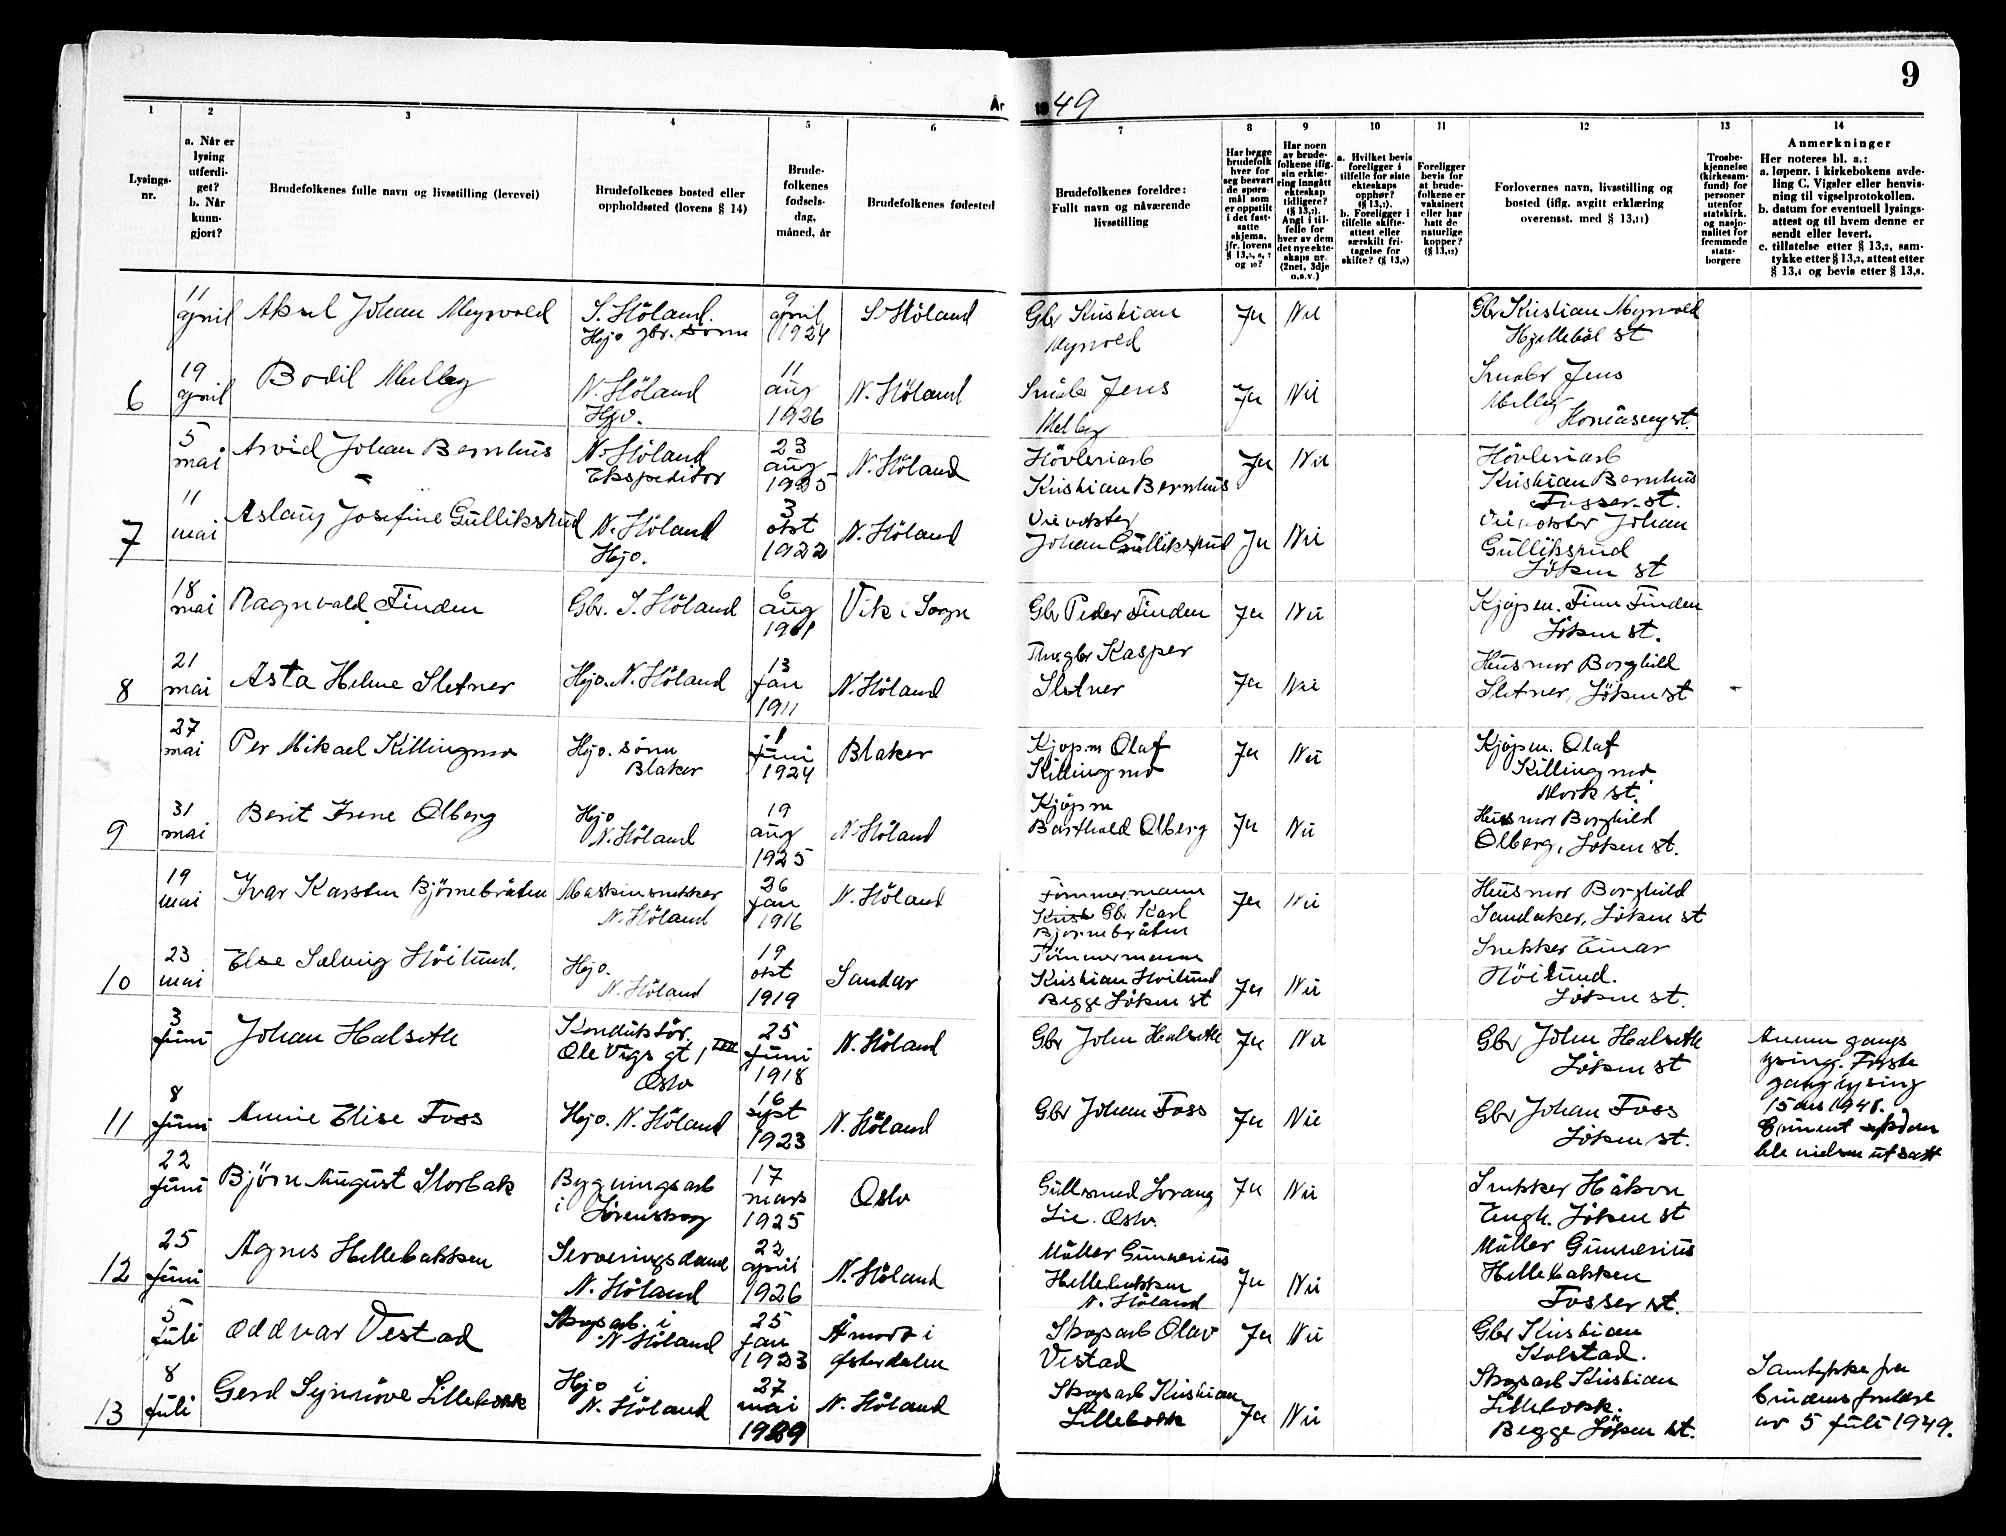 9
År 1949
1
2
3
4
5
6
7
8
9
10
11
12
13
14
Lysings-
nr.
a. Når er
lysing
utferdi-
get?
b. Når
kunn-
gjort?
Brudefolkenes fulle navn og livsstilling (levevei)
Brudefolkenes bosted eller
oppholdssted (lovens § 14)
Brude-
folkenes
fødsels-
dag,
måned, år
Brudefolkenes fødested
Brudefolkenes foreldre:
Fullt navn og nåværende
livsstilling
Har begge
brudefolk
hver for
seg besvart
de spørs-
mål som
er oppstilt
i det fast-
satte
skjema,
jfr. lovens
§ 13,5, 6, 7
og 10?
Har noen
av brude-
folkene iflg.
sin erklæ-
ring inngått
ekteskap
tidligere?
(§ 13,7).
Angi i til-
felle for
hver av dem
det nye ekte-
skaps nr.
(2net, 3dje
o.s.v.)
a. Hvilket bevis
foreligger i
tilfelle for siste
ekteskaps
opphør?
(§ 13,7).
b. Foreligger i
tilfelle skifte-
attest eller
særskilt fri-
tagelse for
skifte? (§ 13,9)
Foreligger
bevis for
at brude-
folkene er
vaksinert
eller har
hatt de
naturlige
kopper?
(§ 13,12)
Forlovernes navn, livsstilling og
bosted (iflg. avgitt erklæring
overensst. med § 13,11)
Trosbe-
kjennelse
(kirkesam-
fund) for
personer
utenfor
statskirk.
og nasjo-
nalitet for
fremmede
stats-
borgere
Anmerkninger
Her noteres bl. a.:
a. løpenr. i kirkebokens avde-
ling C. Vigsler eller henvis-
ning til vigselprotokollen.
b. datum for eventuell lysings-
attest og til hvem denne er
sendt eller levert.
c. tillatelse etter § 13,2, sam-
tykke etter § 13,3, attest etter
§ 13,4 og bevis etter § 13,8.
11
april
Aksel Johan Myrvold
S. Höland.
Hjo gbr. sönn
9
april
1924
S Höland
Gbr Kristian
Myrvold
Ja
Nei
Gbr Kristian Myrvold
Hjellebøl st
6
19
april
Bodil Melleby
N. Höland
Hjo.
11
aug
1926
N. Höland
Småbr Jens
Ja
Nei
Småbr Jens
5
mai
Arvid Johan Bernhus
N. Höland
Ekspeditör
23
aug
1925
N. Höland
Hövleriarb
Kristian Bernhus
Ja
Nei
Hövleriarb
Kristian Bernhus
Fosser st.
7
11
mai
Aslaug Josefine Gulliksrud
N. Höland
Hjo.
3
okt
1922
N. Höland
Veivokter
Johan Gulliksrud
Ja
Nei
Veivokter Johan
Gulliksrud
Löken st
18
mai
Ragnvald Finden
Gbr. S. Höland
6
aug
1901
Vik i Sogn
Gbr Peder Finden
Ja
Nei
Kjöpm. Finn Finden
Löken st.
8
21
mai
Asta Helene Sletner
Hjo. N. Höland
13
jan
1911
N. Höland
Kasper
Sletner
Ja
Nei
Husmor Borghild
Sletner, Löken st
27
mai
Per Mikael Killingmo
Hjo. sönn
Blaker
1
juni
1924
Blaker
Kjöpm Olaf
Killingmo
Ja
Nei
Kjöpm. Olaf
Killingmo.
Mork st.
9
31
mai
Berit Irene Olberg
Hjo
N. Höland
19
aug
1925
N. Höland
Kjöpm
Barthold Olberg
Ja
Nei
Husmor Borghild
Olberg, Löken st.
19
mai
Ivar Karsten Björnebråten
Maskinsnekker
N. Höland
26
jan
1916
N. Höland
Tömmermann
Gbr Karl
Björnebråten
Ja
Nei
Husmor Borghild
Sandaker, Löken st
10
23
mai
Else Solveig Höilund.
Hjo.
N. Höland
19
okt
1919
Sandar
Tömmermann
Kristian Höilund
Begge Löken st
Ja
Nei
Snekker Einar
Höilund.
Löken st.
3
juni
Johan Halseth
Konduktör.
Ole Vigs gt 1 III
Oslo
25
juni
1918
N. Höland
Gbr John Halseth
Ja
Nei
Gbr John Halseth
Löken st
Annen gangs
lysing. Første
gang lysing
11
8
juni
Annie Elise Foss
Hjo. N. Höland
16
sept
1923
N. Höland
Gbr Johan Foss
Ja
Nei
Gbr Johan Foss
Löken st.
ble utsatt
22
juni
Björn August Storbak
Bygningsarb
i Lörenskog
17
mars
1925
Oslo
Gullsmed
Lie. Oslo.
Ja
Nei
Snekker Håkon
Engh. Löken st
12
25
juni
Agnes Hellebakken
Serveringsdame
N. Höland
22
april
1926
N. Höland
Möller Gunnerius
Hellebakken
N. Höland
Ja
Nei
Möller Gunnerius
Hellebakken
Fosser st.
5
juli
Oddvar Vestad
Skogsarb. i
N Höland
25
jan
1923
Åmot i
Østerdalen
Skogsarb Olav
Vestad
Ja
Nei
Gbr Kristian
Kolstad.
13
8
juli
Gerd Synnöve Lillebokk
Hjo i
N. Höland
27
mai
1929
N. Höland
Skogsarb Kristian
Lillebokk
Ja
Nei
Skogsarb Kristian
Lillebokk.
Begge Löken st.
Samtykke fra
brudens foreldre
av 5 juli 1949.